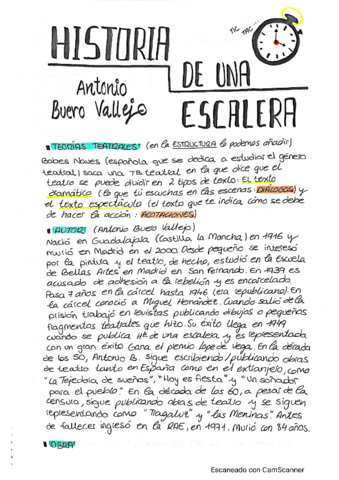 TIC TAC
HISTORIA
DE UNA
ESCALERA
Antonio
Buero Vallejo
TEORÍAS TEATRALES (en la ESTRUCTURA la podemos añadir)
Bobes Naves (española que se dedica a estudios el género
teatral) saca una TB teatral en la que dice que el
teatro se puede dividir en 2 tipos de texto: El texto
dramático (lo que tú escuchas en las escenas: DIÁLOGOS) y
el texto espectáculo (el texto que te indica cómo se debe
de hacer la acción: ACOTACIONES)
AUTOR (Antonio Buero Vallejo)
Nació en Guadalajara (Castilla la Mancha) en 1916 y
murió en Madrid en el 2000. Desde pequeño se interesó
por la pintura y el teatro, de hecho, estudió en la escuela
de Bellas Artes en Madrid en San Fernando. En 1939 es
acusado de adhesión a la rebelión y es encarcelado.
Pasa 7 años en la cárcel hasta 1946 (era republicano). En
la cárcel conoció a Miguel Hernández. Cuando salió de la
prisión trabajó en revistas publicando dibujos o pequeños
fragmentos teatrales que hizo. Su éxito llega en 1949
cuando se publica Hª de una escalera, y es representada
con un gran éxito. Gana el premio Lope de Vega. En la década
de los 50, Antonio B. sigue escribiendo/publicando obras
de teatro tanto en España como en el extranjero, como
"La Tejedora de sueños", "Hoy es fiesta" y "Un soñador
para el pueblo". En la década de los 60, a pesar de la
censura, sigue publicando obras de teatro y se siguen
representando como "Tragaluz" y "las Meninas". Antes
de fallecer ingresó en la RAE, en 1971. Murió con 84 años.
OBRA
Escaneado con CamScanner